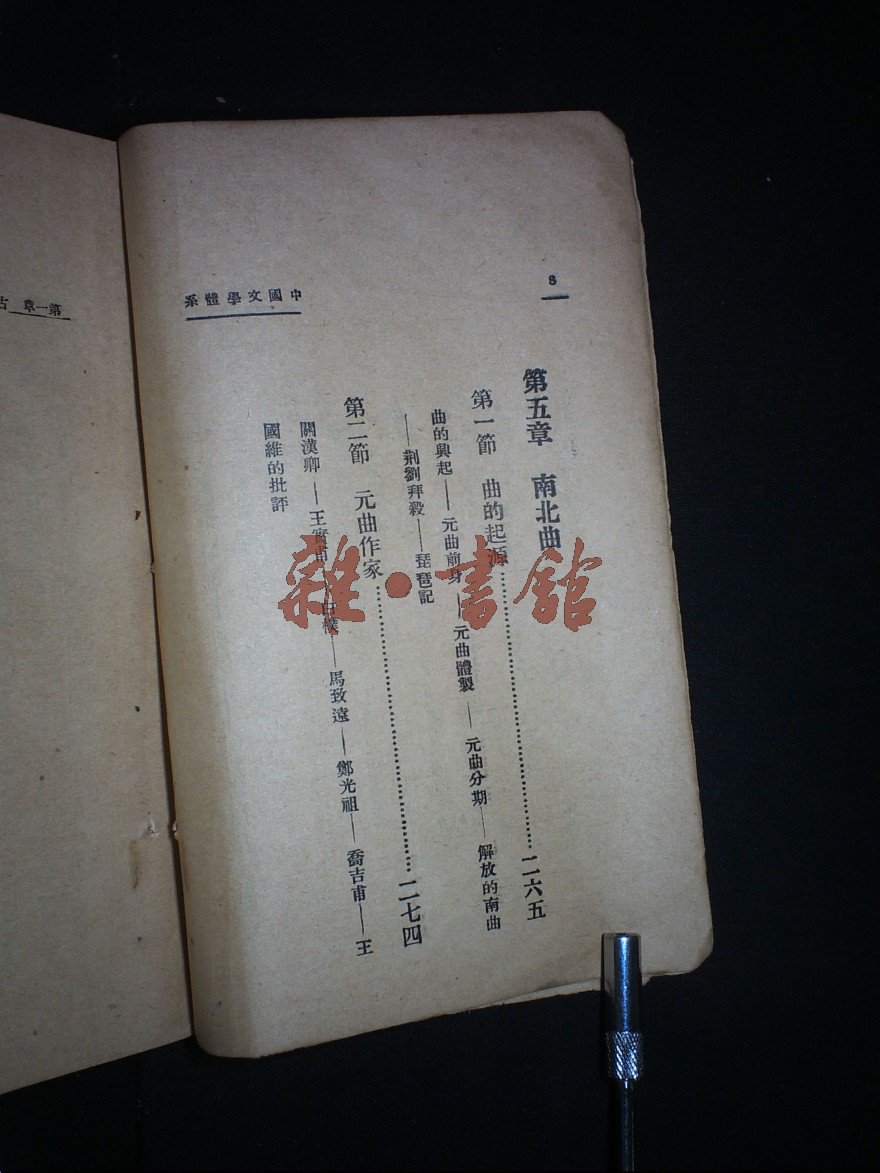 8
中國文學體系
第五章　南北曲
第一節　曲的起源……二六五
曲的興起——元曲前身——元曲體製——元曲分期——解放的南曲
——荆劉拜殺——琵琶記
第二節　元曲作家……二七四
關漢卿——王實甫——白樸——馬致遠——鄭光祖——喬吉甫——王
國維的批評
第一章　古
雜·書館